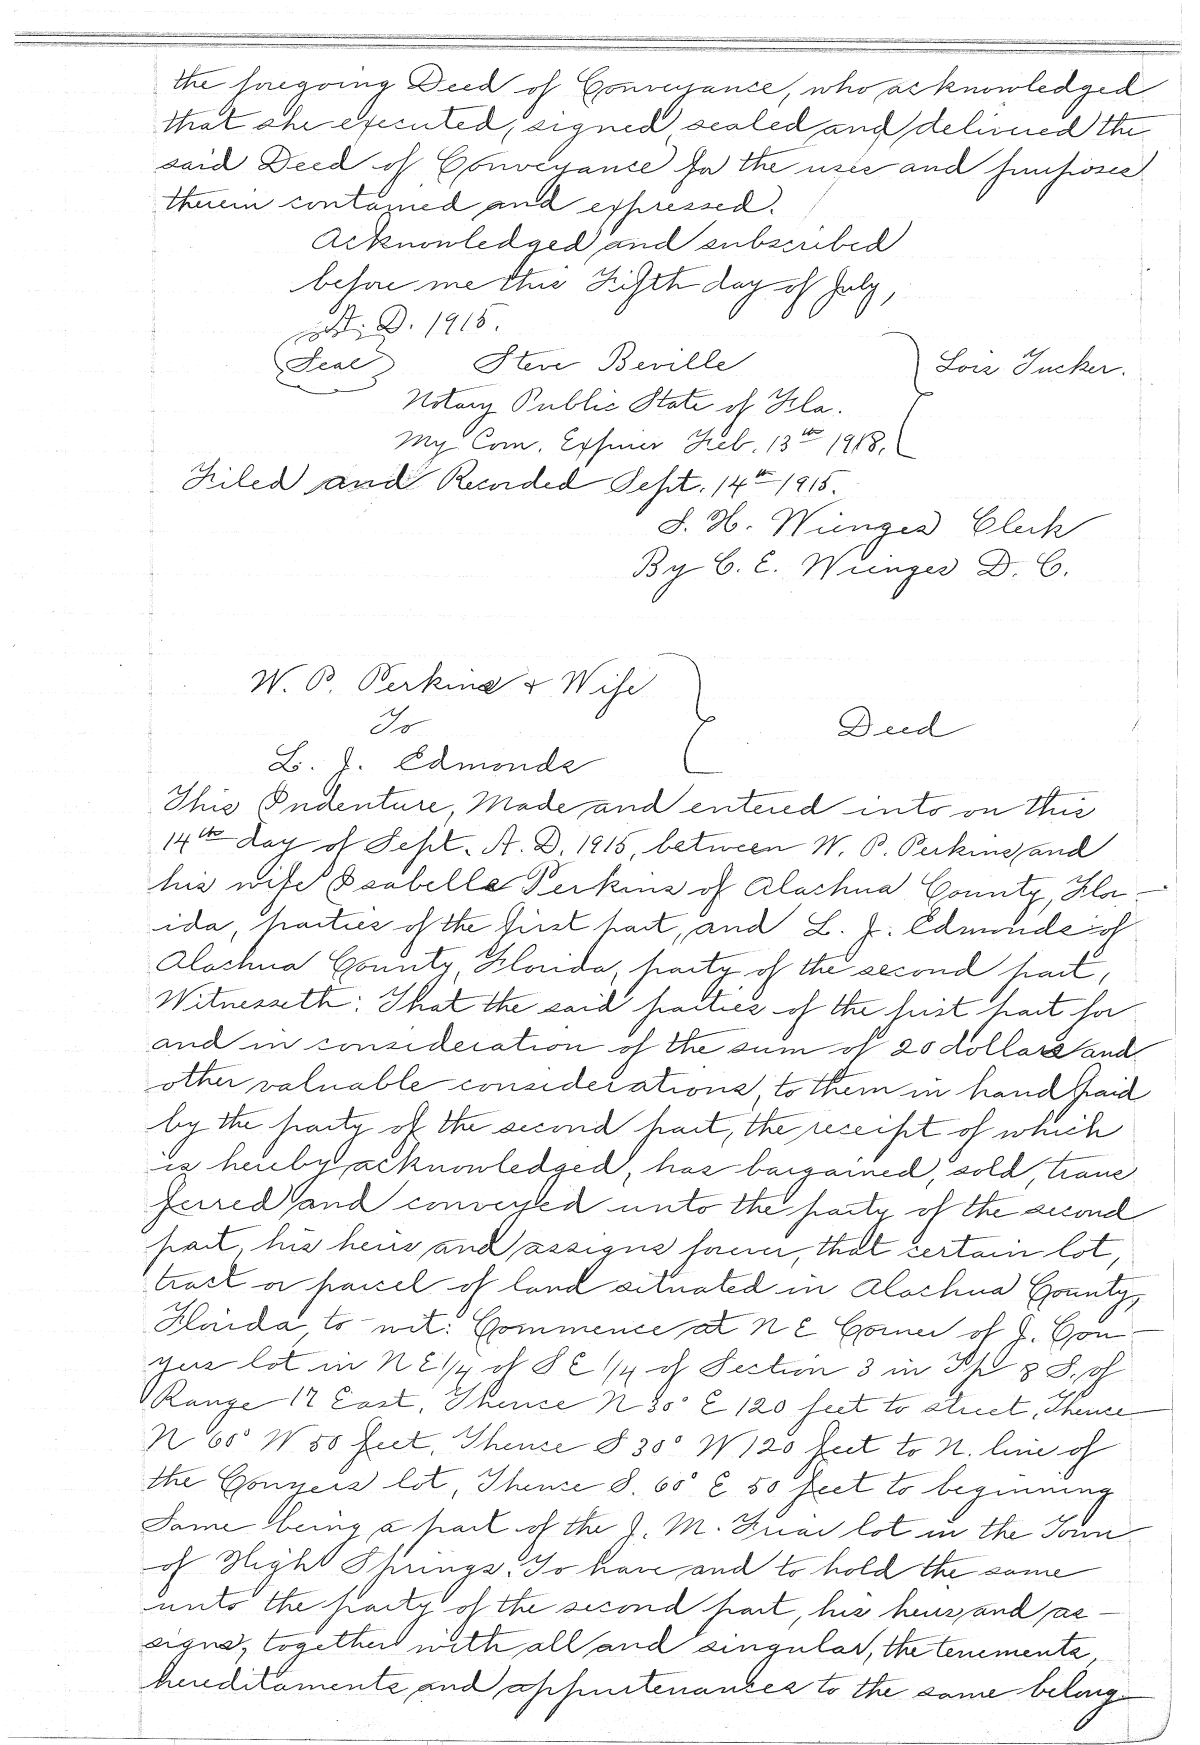 the foregoing Deed of Conveyance, who acknowledged
that she executed, signed, sealed and delivered the
said Deed of Conveyance for the uses and purposes
therein contained and expressed.
Acknowledged and subscribed
before me this Fifth day of July,
A. D. 1915.
Seal Steve Beville Lois Tucker.
Notary Public State of Fla.
My Com. Expires Feb. 13th 1918.
Filed and Recorded Sept. 14th 1915.
S. H. Wienges Clerk
By C. E. Wienges D. C.
W. P. Perkins & Wife
To Deed
L. J. Edmonds
This Indenture, Made and entered into on this
14th day of Sept. A. D. 1915, between W. P. Perkins and
his wife Isabella Perkins of Alachua County, Flor-
ida, parties of the first part, and L. J. Edmonds of
Alachua County, Florida, party of the second part,
Witnesseth: That the said parties of the first part for
and in consideration of the sum of 20 dollars and
other valuable considerations, to them in hand paid
by the party of the second part, the receipt of which
is hereby acknowledged, has bargained, sold, trans
ferred and conveyed unto the party of the second
part, his heirs and assigns forever, that certain lot,
tract or parcel of land situated in Alachua County,
Florida, to-wit: Commence at N E Corner of J. Con-
yers lot in N E 1/4 of S E 1/4 of Section 3 in Tp 8 S. of
Range 17 East, Thence N 30° E 120 feet to street, Thence
N 60° W 50 feet, Thence S 30° W 120 feet to N. line of
the Conyers lot, Thence S. 60° E 50 feet to beginning
Same being a part of the J. M. Friar lot in the Town
of High Springs. To have and to hold the same
unto the party of the second part, his heirs and as-
signs, together with all and singular, the tenements,
hereditaments and appurtenances to the same belong-